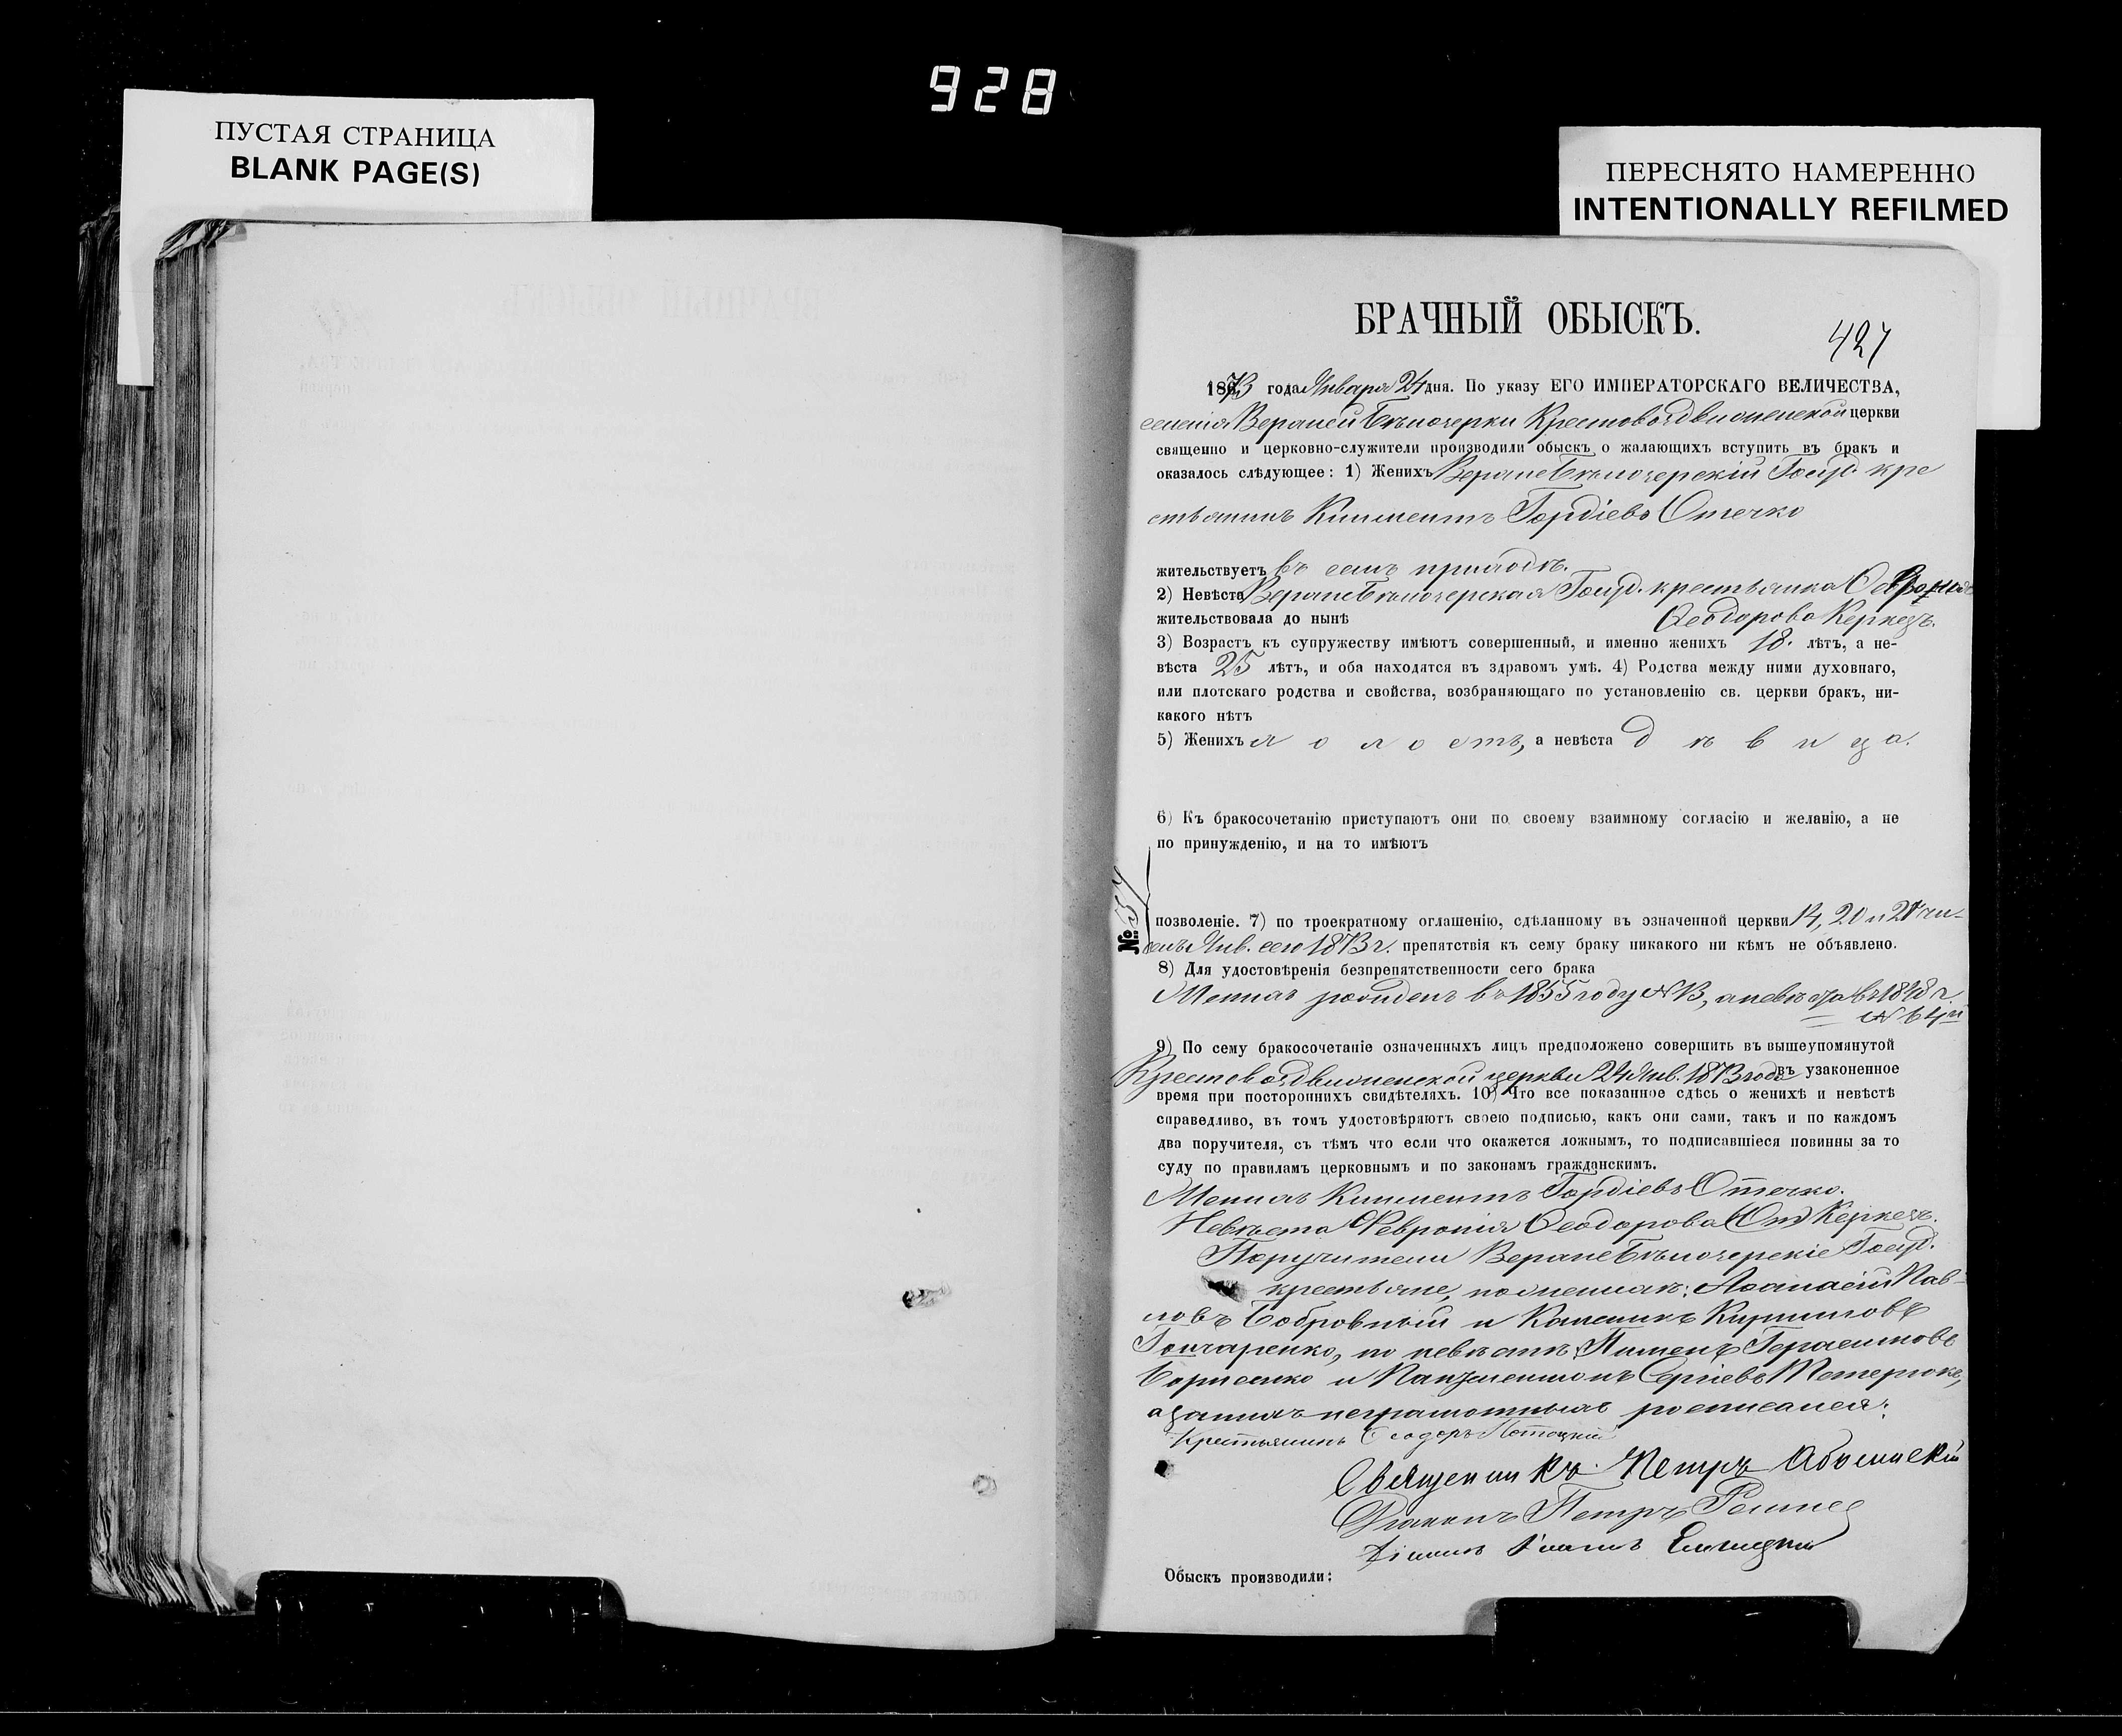 928
ПУСТАЯ СТРАНИЦА
BLANK PAGE(S)
ПЕРЕСНЯТО НАМЕРЕННО
INTENTIONALLY REFILMED
БРАЧНЫЙ ОБЫСКЪ.
427
1873 года Января 24 дня. По указу ЕГО ИМПЕРАТОРСКАГО ВЕЛИЧЕСТВА,
селенія Верхней Бѣлозерки Крестовоздвиженской церкви
священно и церковно-служители производили обыскъ о жалающихъ вступить въ бракъ и
оказалось слѣдующее: 1) Женихъ Верхнебѣлозерскій Госуд. кре
стьянинъ Климентъ Гордіевъ Отечко
жительствуетъ въ семъ приходѣ.
2) Невѣста Верхнебѣлозерская Госуд. крестьянка
жительствовала до нынѣ Ѳеодорова Керкезъ.
3) Возрастъ къ супружеству имѣютъ совершенный, и именно женихъ 18. лѣтъ, а не-
вѣста 25 лѣтъ, и оба находятся въ здравомъ умѣ. 4) Родства между ними духовнаго,
или плотскаго родства и свойства, возбраняющаго по установленію св. церкви бракъ, ни-
какого нѣтъ
5) Женихъ холостъ, а невѣста дѣвица.
6) Къ бракосочетанію приступаютъ они по своему взаимному согласію и желанію, а не
по принужденію, и на то имѣютъ
№ 57
позволеніе. 7) по троекратному оглашенію, сдѣланному въ означенной церкви 14, 20 и 21 чи-
селъ Янв. сего 1873 г. препятствія къ сему браку никакого ни кѣмъ не объявлено.
8) Для удостовѣренія безпрепятственности сего брака
Женихъ рожденъ въ 1855 году № 13, а невѣста въ 1848 г.
№ 64й
9) По сему бракосочетаніе означенныхъ лицъ предположено совершить въ вышеупомянутой
Крестовоздвиженской церкви 24 Янв. 1873 года въ узаконенное
время при постороннихъ свидѣтеляхъ. 10) Что все показанное сдѣсь о женихѣ и невѣстѣ
справедливо, въ томъ удостовѣряютъ своею подписью, какъ они сами, такъ и по каждомъ
два поручителя, съ тѣмъ что если что окажется ложнымъ, то подписавшіеся повинны за то
суду по правиламъ церковнымъ и по законамъ гражданскимъ.
Женихъ Климентъ Гордіевъ Отечко.
Невѣста Февронія Ѳеодорова Керкезъ.
Поручители Верхнебѣлозерскіе Госуд.
крестьяне, по женихѣ: Аѳанасій Пав-
ловъ Бобровный и Калиникъ Кирилловъ
Гончаренко, по невѣстѣ Пименъ Герасимовъ
Борисенко и Пантелеимонъ Сергіевъ Тетерюкъ,
а за нихъ неграмотныхъ росписался:
Крестьянинъ Ѳеодоръ Потоцкій
Священникъ Петръ
Діаконъ Петръ
Діаконъ Іоаннъ
Обыскъ производили: